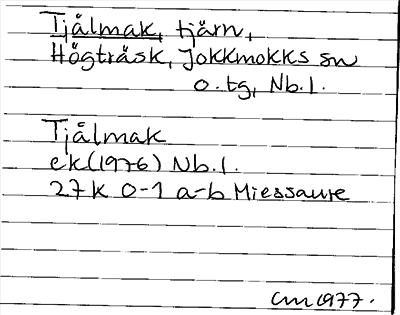 Tjålmak, tjärn,
Högträsk, Jokkmokks sn
o. tg, Nb. l.
Tjålmak
ek (1976) Nb. l.
27 K 0-1 a-b Miessaure
CM 1977.